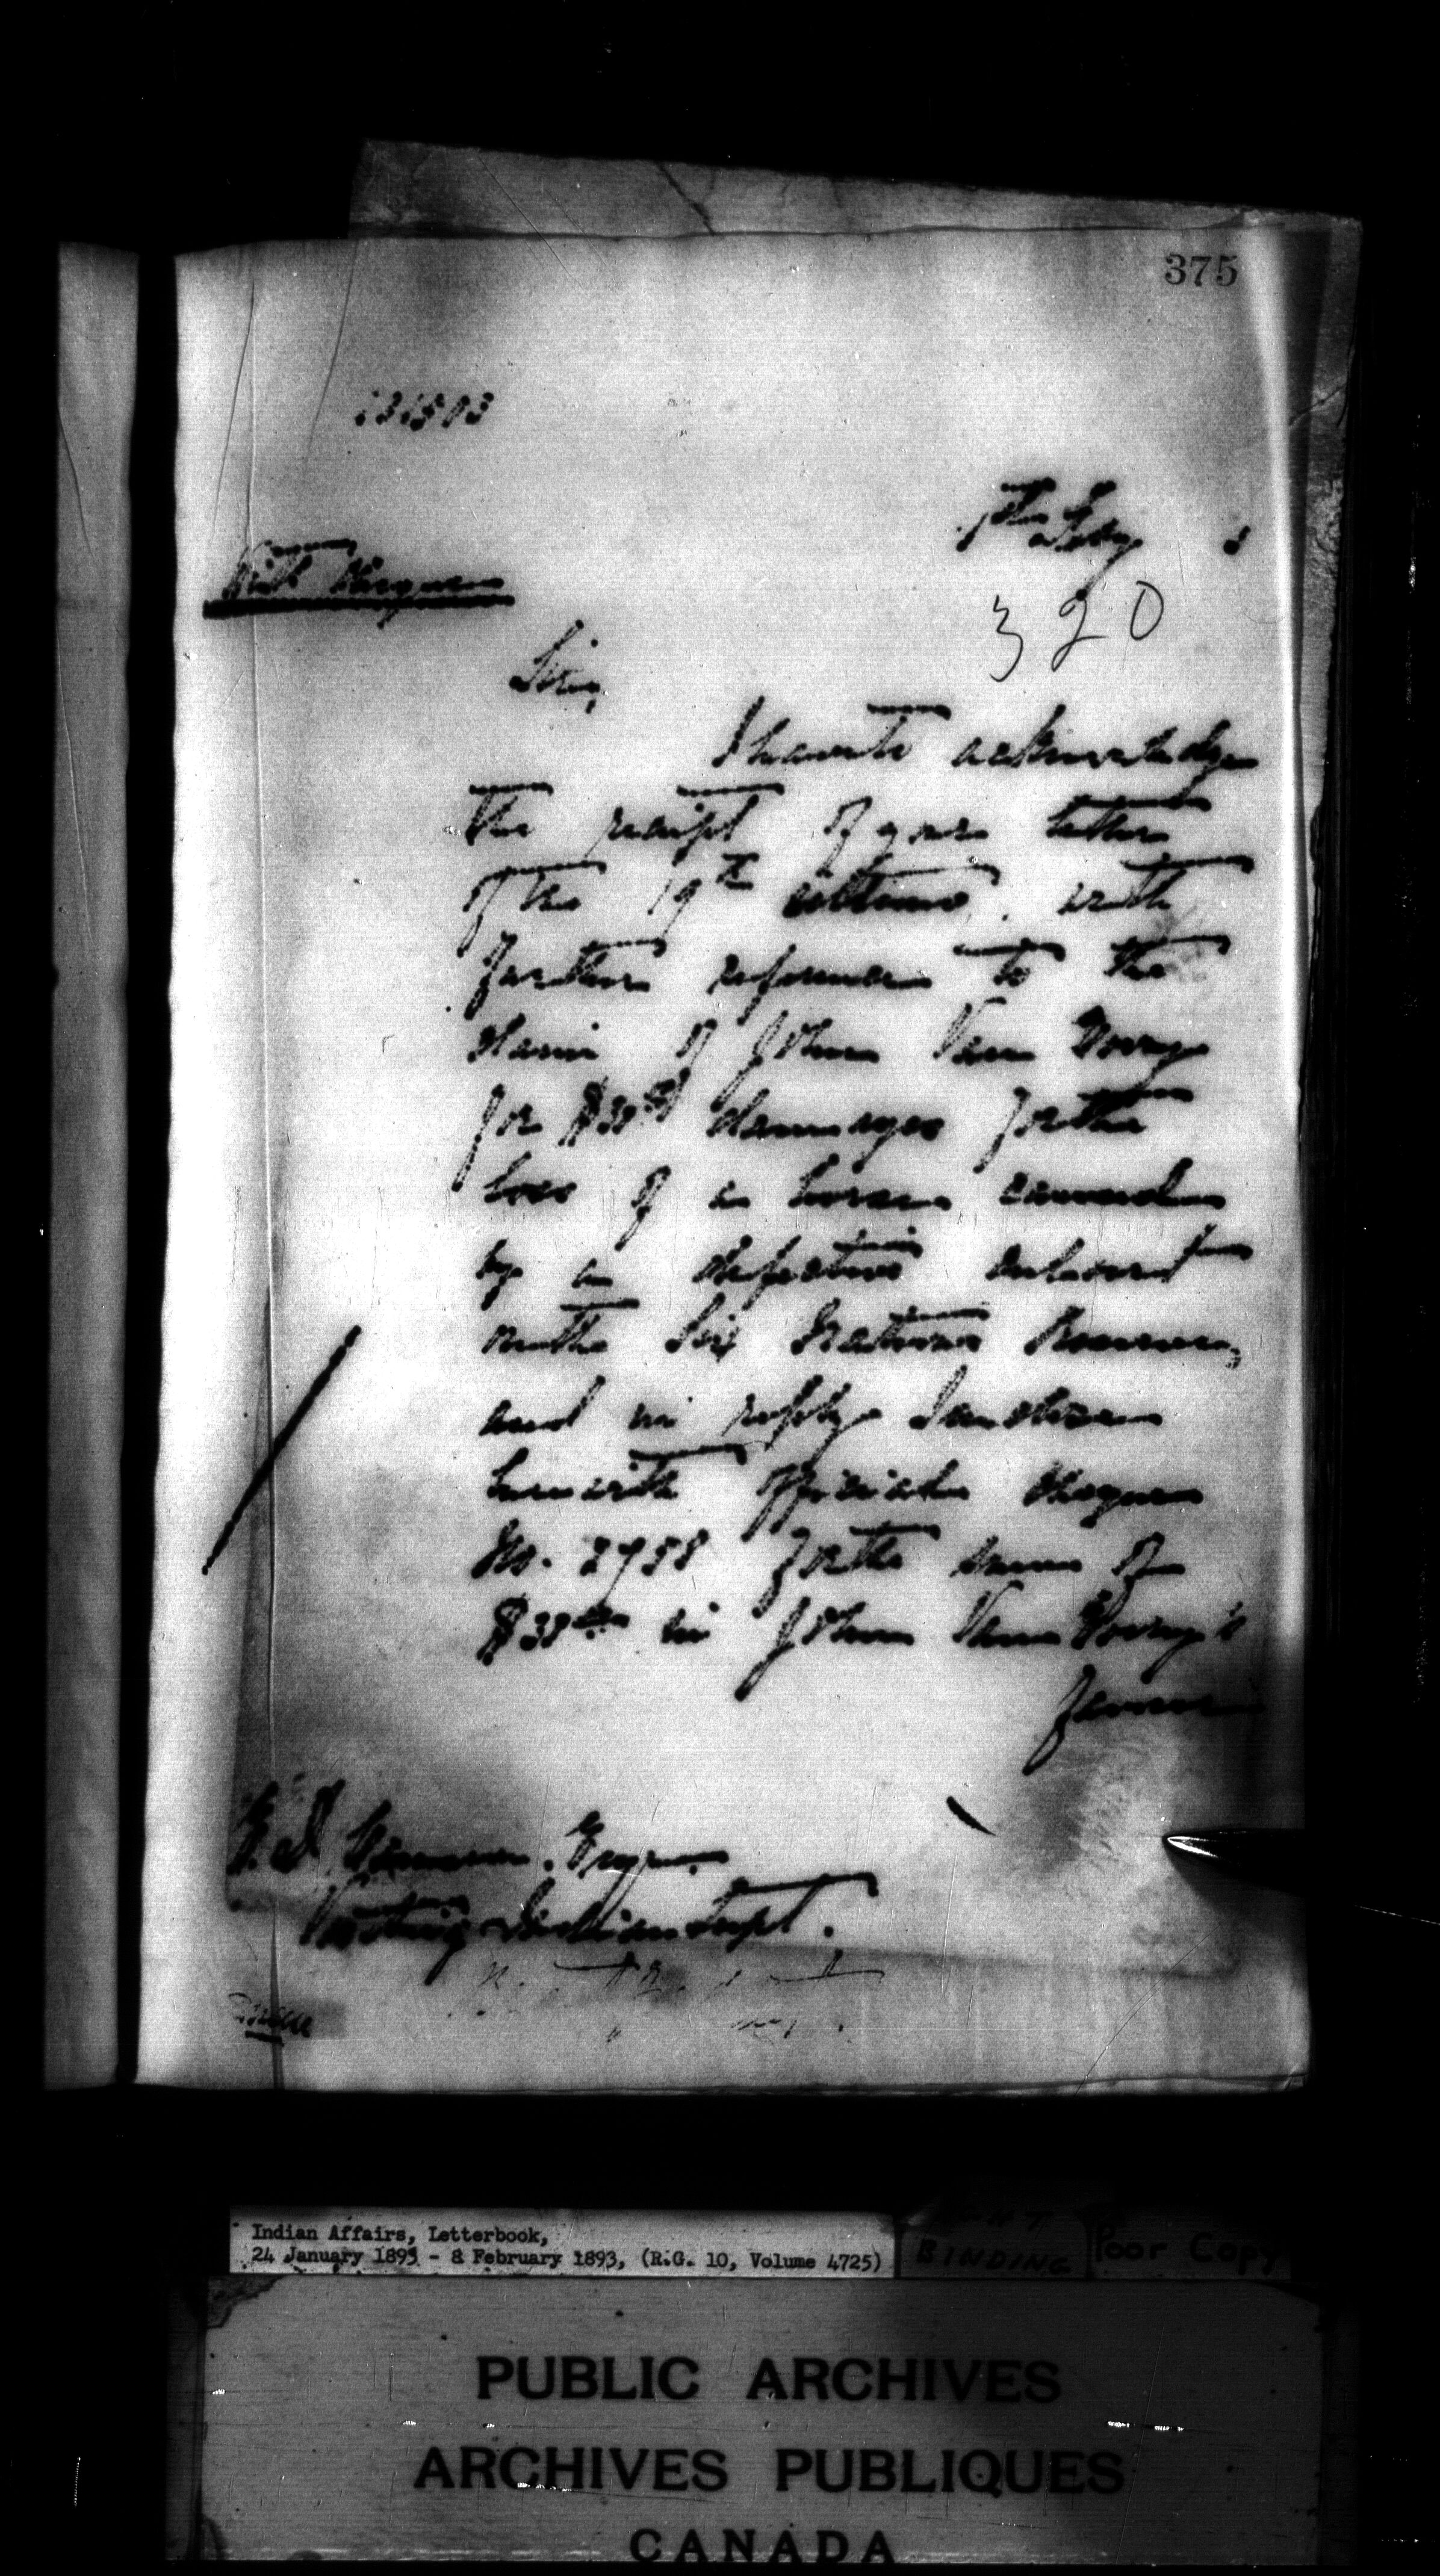 375
131503
7th Feby 3
With Cheque
320
Sir,
I have to acknowledge
the receipt of your letter
of the 19th ultimo, with
further reference to the
claim of John Van Every
for damages for the
loss of a horse caused
by a defective culvert
on the Six Nations Reserve,
and in reply I enclose
herewith Official Cheque
No. 2758 for the sum of
in John Van Every's
favour
E. D. Cameron, Esqre.
Visiting Indian Supt.
Indian Affairs, Letterbook,
24 January 1893 - 8 February 1893, (R.G. 10, Volume 4725)
BINDING
Poor Copy
PUBLIC ARCHIVES
ARCHIVES PUBLIQUES
CANADA